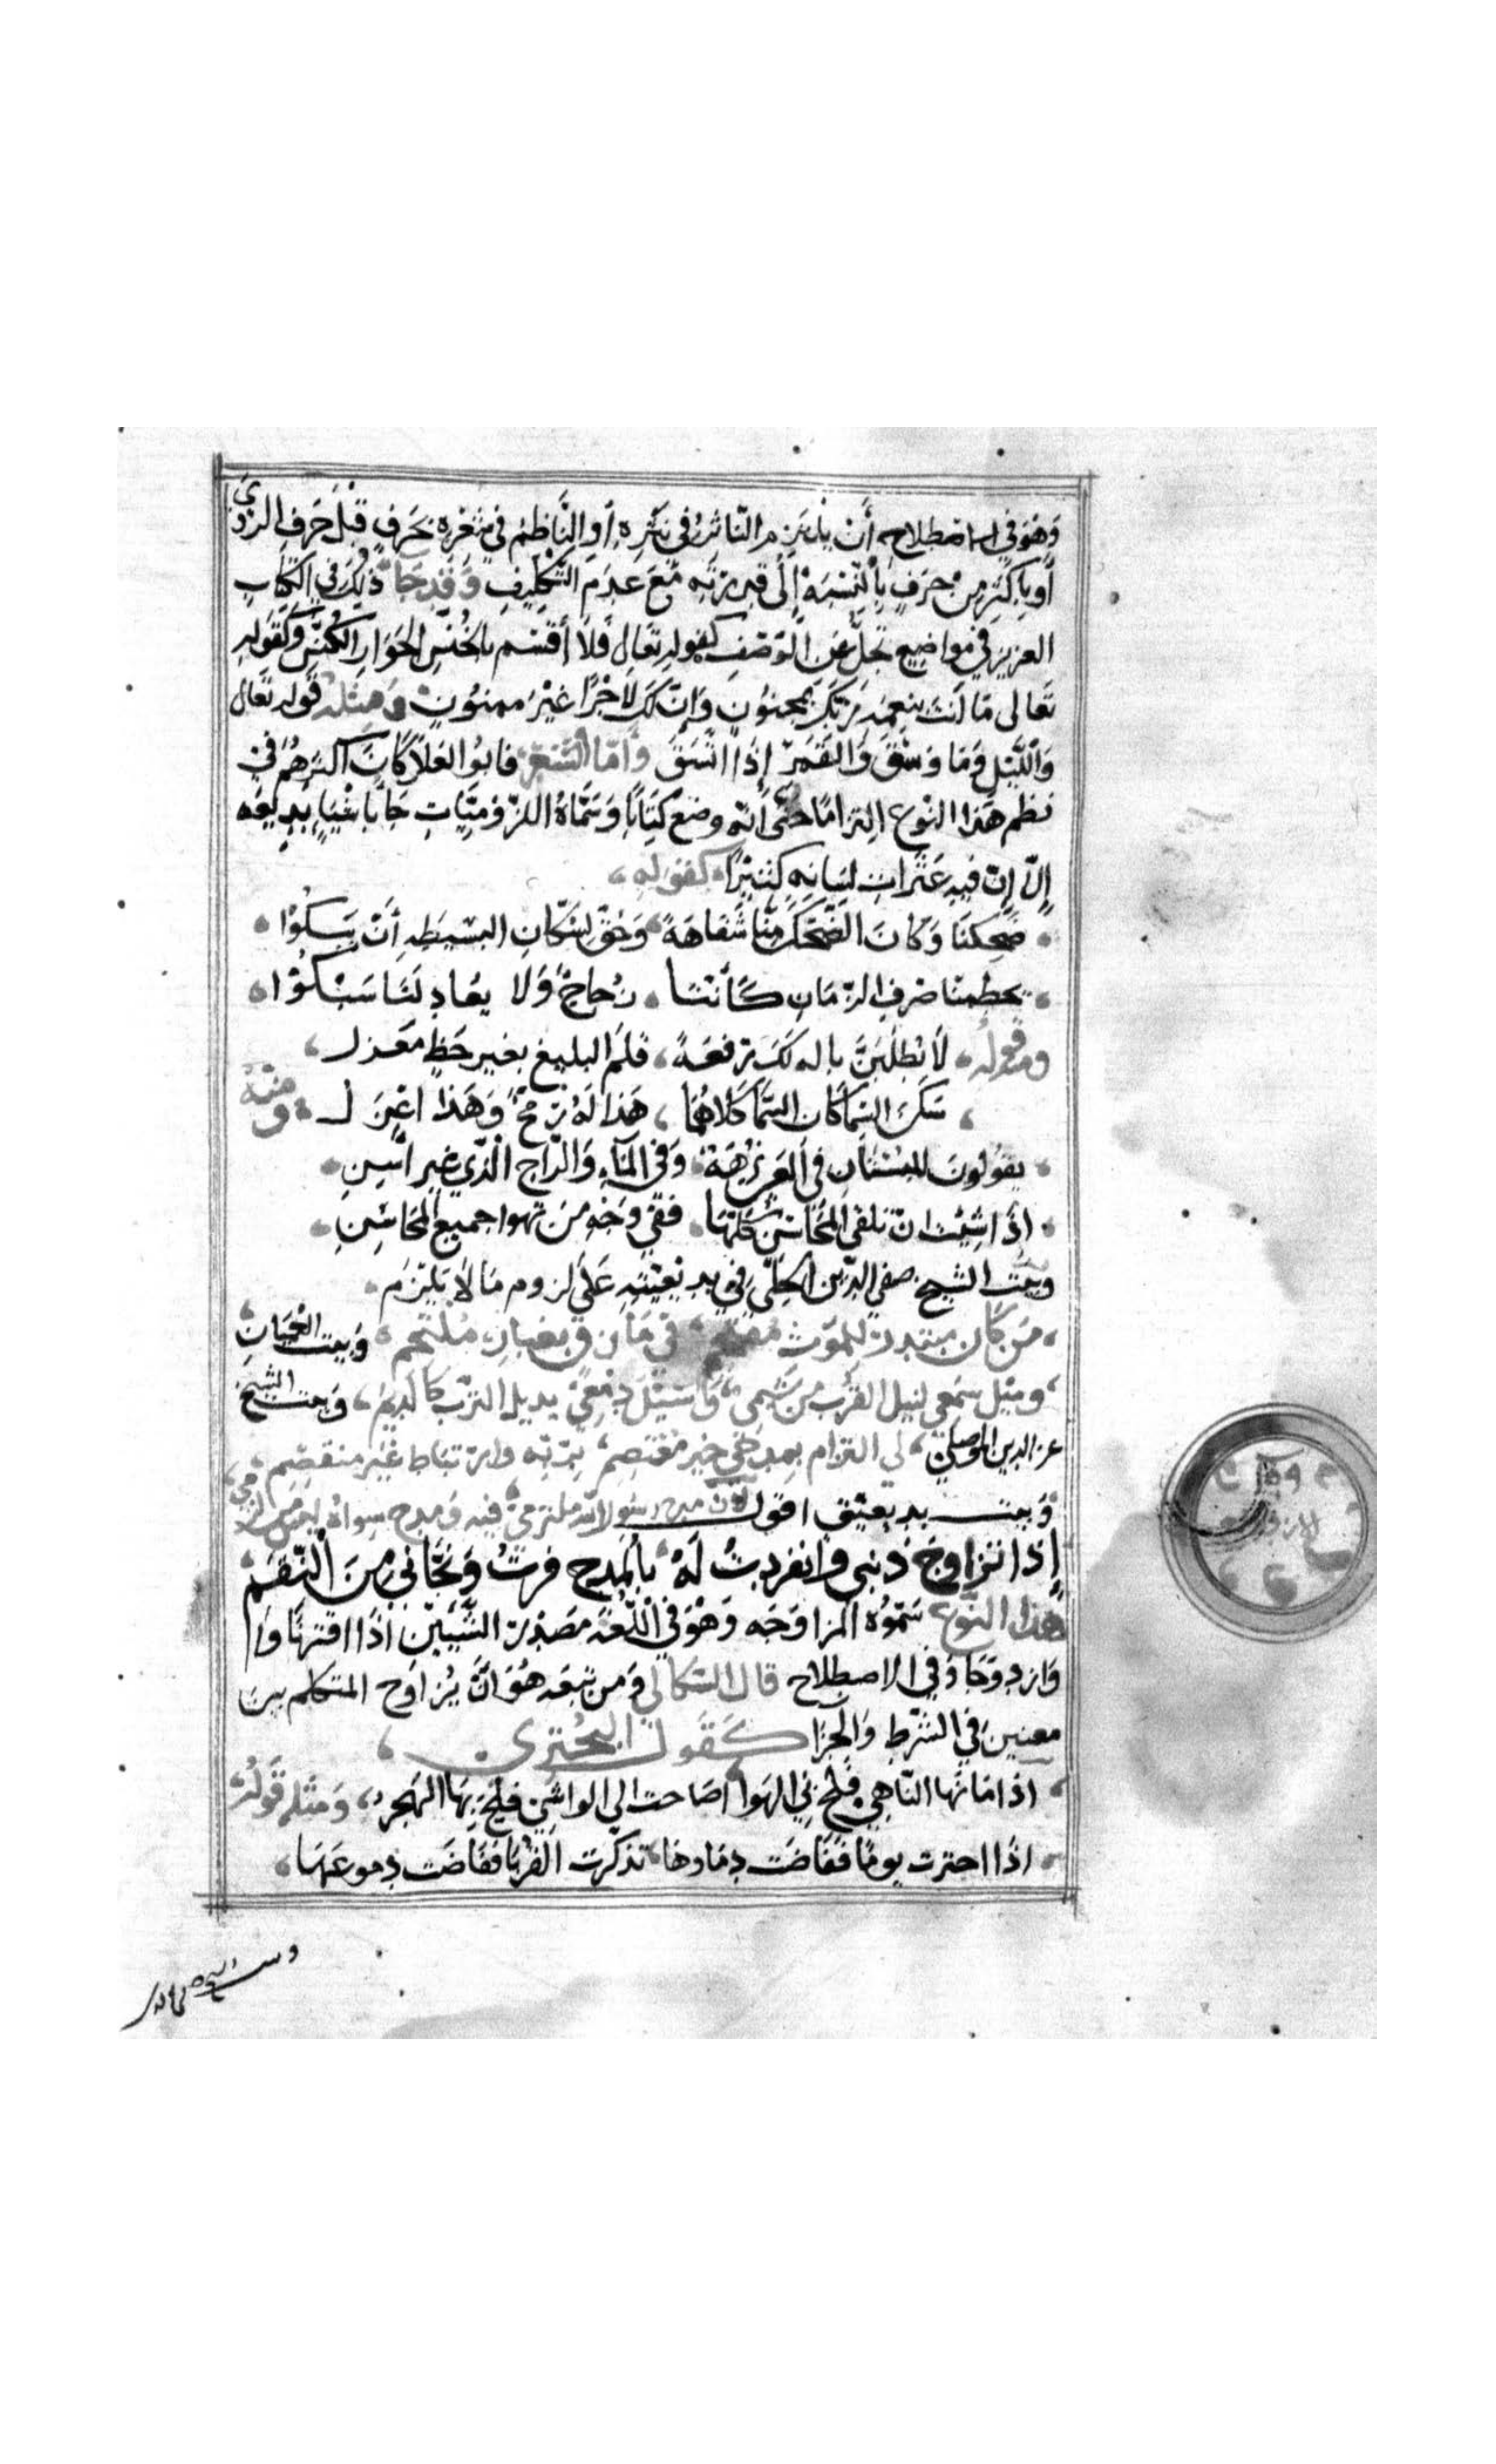 وَهْوَ في الاصطلاح أَنْ يلتزم النّاثر في نثره أو النَّاظم في شعره بحَرفٍ قبْلَ حَرفِ الروي
أو باكثر من حرَفٍ بالنّسْبَة إلى قدرته مَعَ عدم التّكليفِ وَقد جَا ذلِكَ في الكتابِ
العزيز في مواضيع تجلّ عَن الوَصْف كقوله تعَالى فَلا أقسم بالخُنّسِ الجَوَارِ الكُنّسِ وَكقوله
تعَالى مَا أنتَ بنِعْمَة رَبّكَ بمجنوُنٍ وَإنّ لَكَ لاجْرًا غَيْرَ ممنوُنٍ وَمثله قوله تعَالى
وَالليْل وَمَا وَسَقَ وَالقَمَرِ إذَا اتّسَقَ وأمّا الشعر فابوا العَلا كانَ اكثرهُم في
نظم هَذا النوع التزامًا حتّى أنه وضعَ كتَابًا وَسَمّاهُ اللزومّياتِ جَا باشيَاء بديعَه
إلّا إنّ فيهِ عَثَراتِ لسَانِه كثيرًا كقوله
ضحِكنَا وَكانَ الضّحكُ مِنّا سَفاهَةً وَحُقّ لسُكّانِ البسيطَةِ أَنْ يَبكوُا
يحطمنا صَرفُ الزّمَانِ كَأنّنَا زُجاجٌ وَلا يعُادِ لَنَا سَبْكوُا
ومنه قوله لا تطلبَنّ بالةٍ لَكَ رفعَةً قلَم البليغِ بغيرِ حَظٍ مغزل
سَكنَ السِّماكَان السّمَا كلاهُمَا هَذا لهُ رُمحٌ وَهَذا اعْزَل ومنه
يقولونَ للبسْتانِ في العَين نزهَة وَفي المآءِ وَالرّاحِ الّذي غير اسِنِ
اذَا شِئْتَ ان تلقى المحَاسنَ كلّهَا ففي وَجْهِ مَن تهوا جميعُ المحَاسِنِ
وبيت الشيخ صفي الدّين الحِلّي في بديعيّته عَلى لزوم مَا لا يَلزَم
مَن كان مبتدرً للموَت في مَازِقٍ بغبارِ مُلتحم وَبيت العميان
وميل سمَعي لنيل القُرب من شيَمي وَسَيْلَ دَمْعي بديل الترب كالديم وَبيت الشيخ
عز الدين الموصلي لي التزام بمدحي خير مُعْتصم بربّه وارتباط غَير منقصم
وَبيت بديعيّتي اقول لان مدح رسول الله ملتزمي فيه وَمدح سواهُ ليَس من لزمي
إذَا تزاوَجَ ذَنبي وانفردتُ لَهُ بالمَدح فزتُ وَنجّاني مِنَ النّقَم
هذا النّوع سَمّوُه المزاوَجَه وَهْوَ في اللّغَة مَصْدر الشّيئَين اذَا اقترنَا وا
وَازدوجَا وَفي الاصطلاح قال السّكاكي وَمن تبعَه هُوَ انْ يُزاوَج المتكلم بين
معنيين في الشرط وَالجزا كَقول البُحْتري
اذا مَا نهَا النّاهي فلجّ بي الهَوا اصَاخت الى الواشي فلجّ بهَا الهَجر وَمثله قوله
اذا احتربت يومًا فَفاضَت دمَاوها تذكّرت القُربَا ففَاضَت دموعهَا